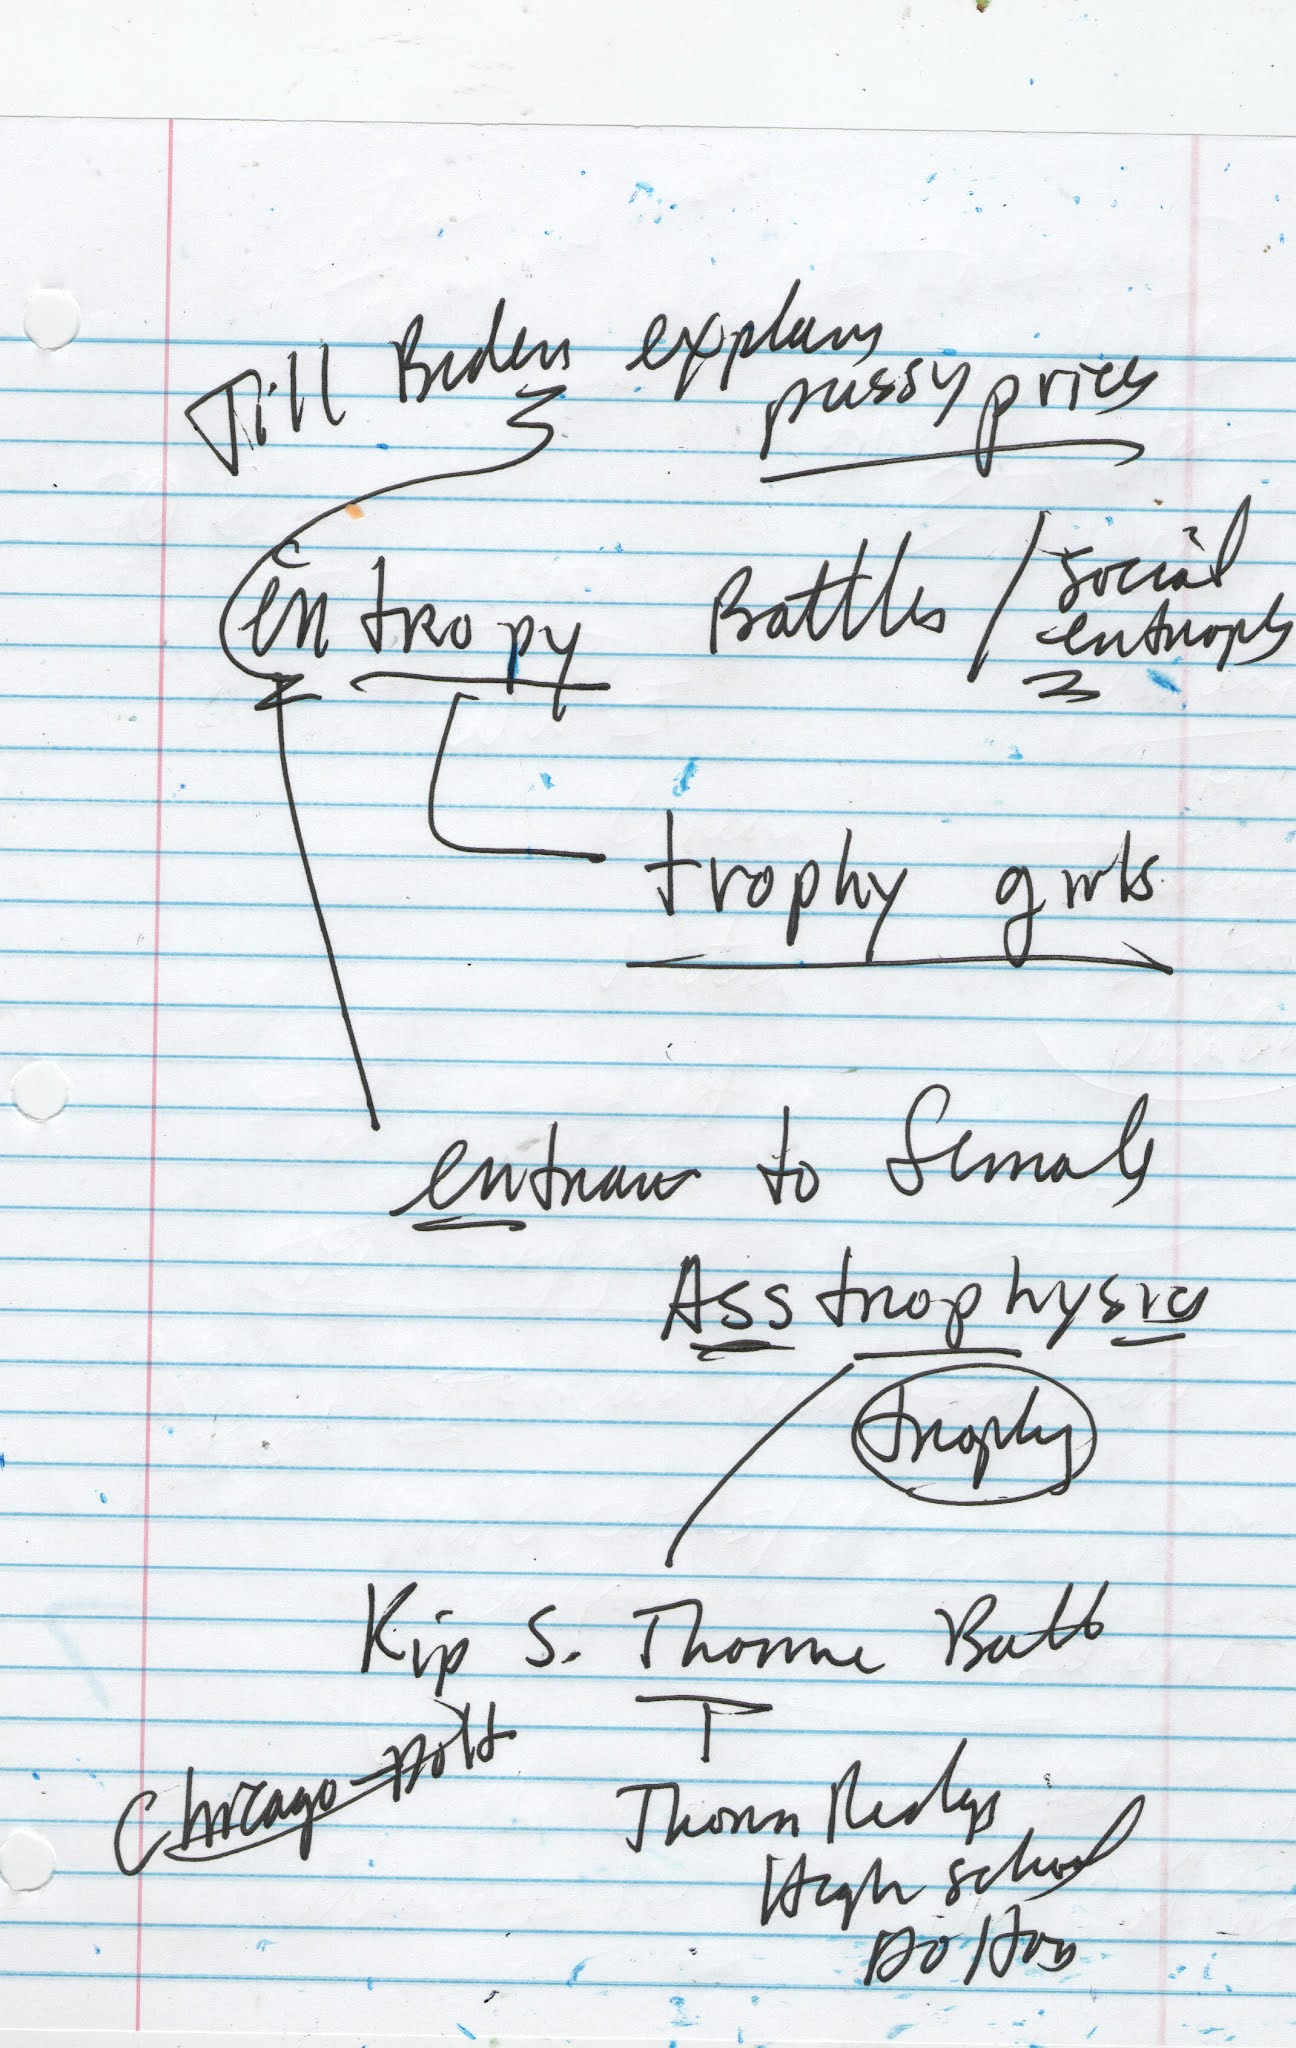 Jill Biden explains
pussy prices
entropy Battles / social
entropy
trophy girls
entrance to female
Asstrophysics
trophy
Kip S. Thorne Butt
Chicago Dolt
Thorn Ridge
High school
Dolton